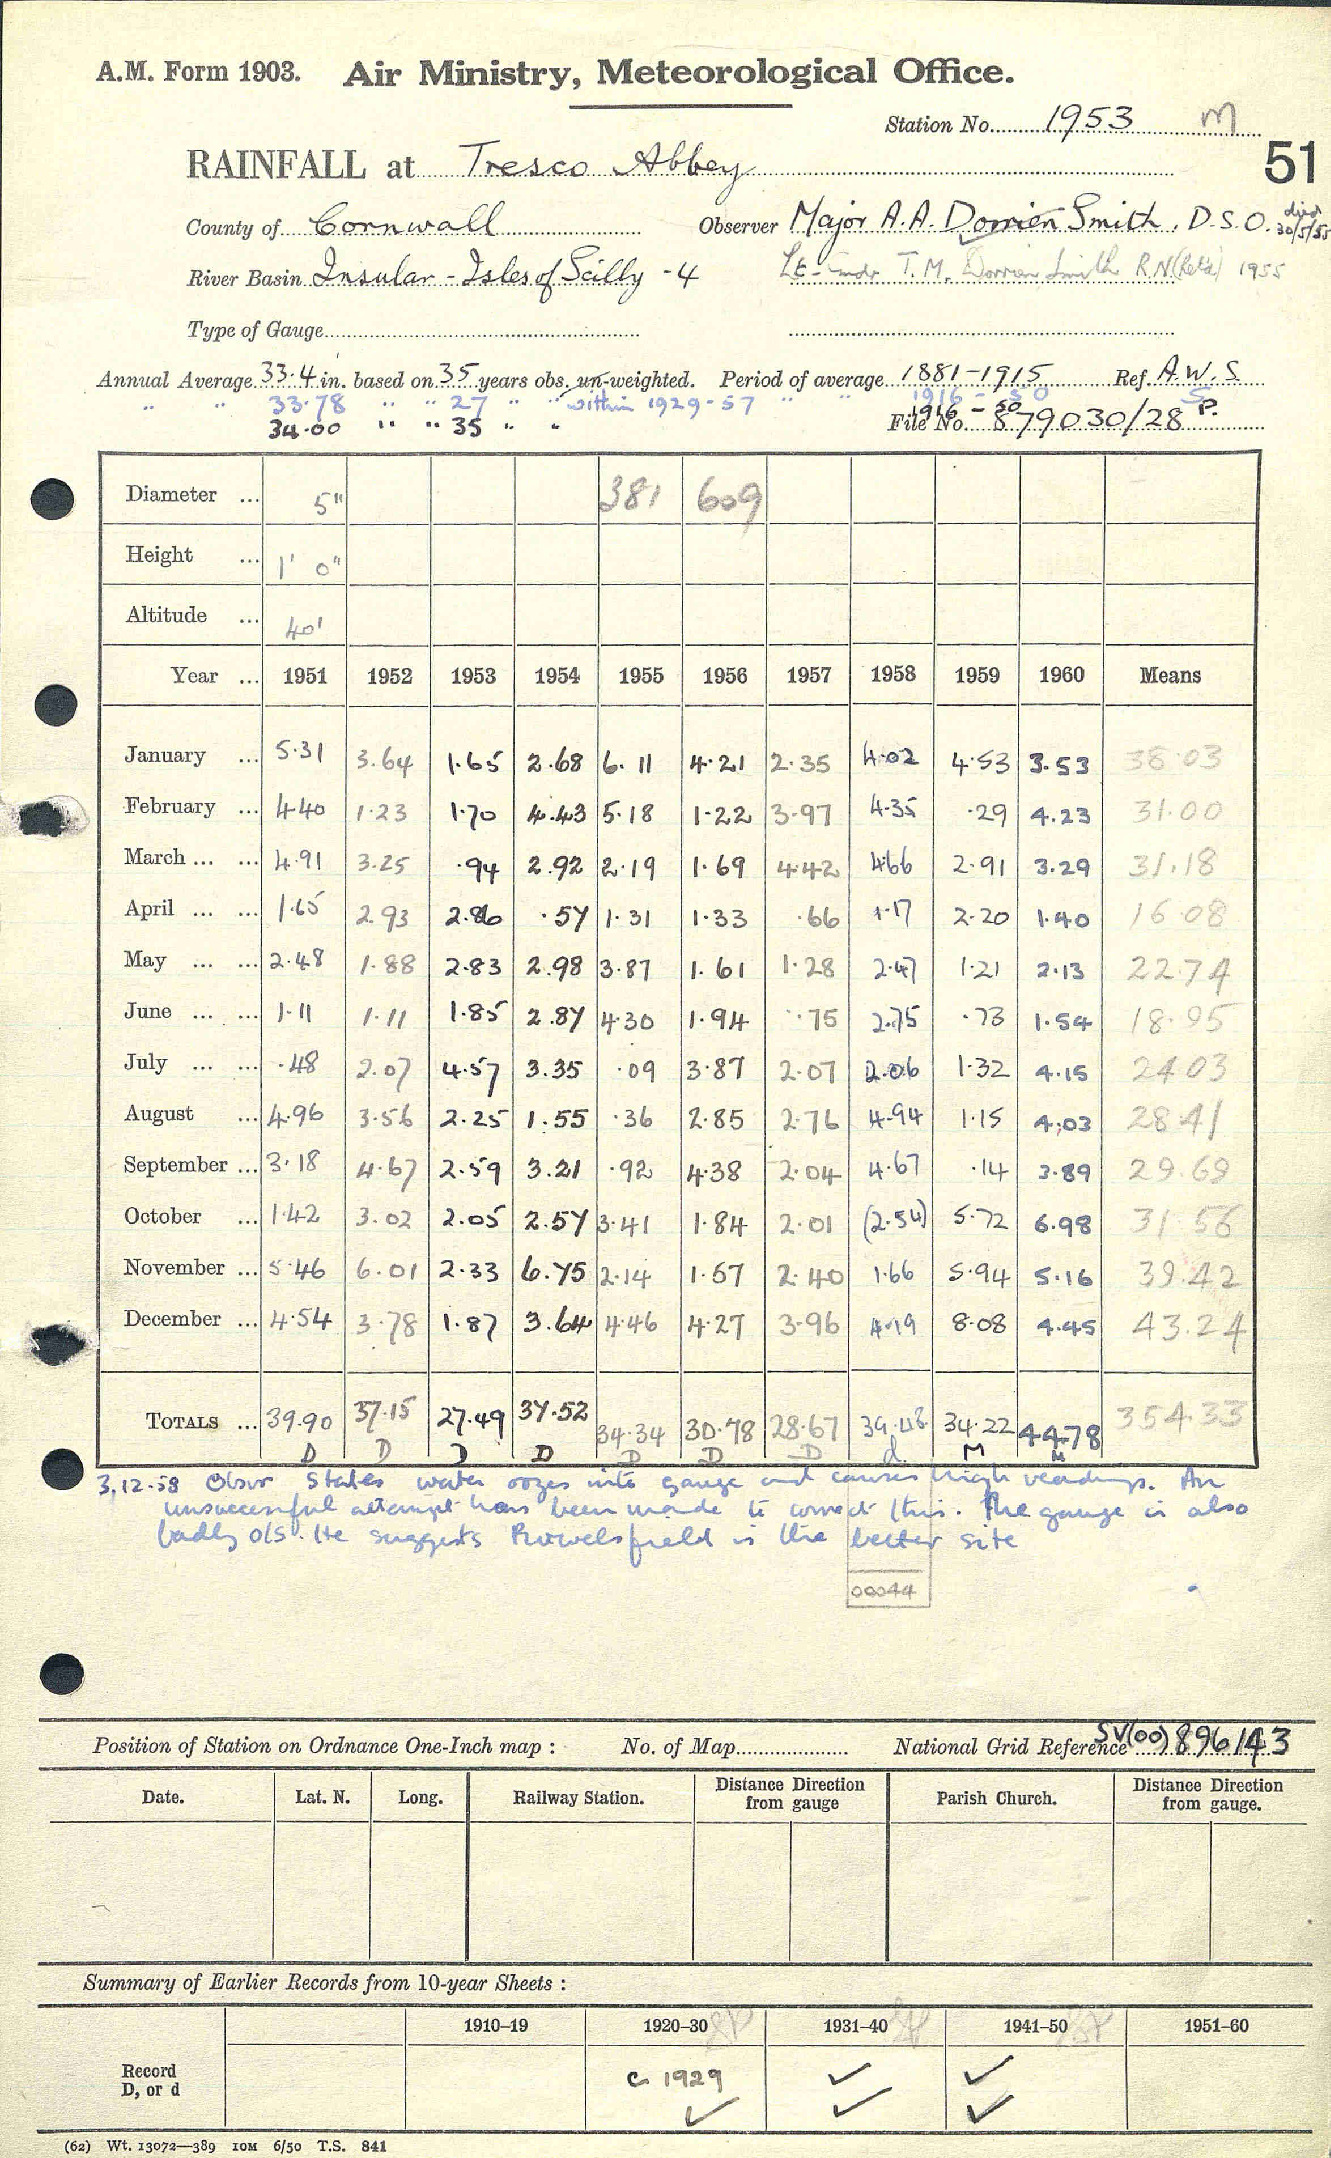 A.M. Form 1903. Air Ministry, Meteorological Office.
Station No. 1953 M
51
RAINFALL at Tresco Abbey
County of Cornwall Observer Major A.A. Dorrien Smith, D.S.O. died 30/5/55
River Basin Insular - Isles of Scilly - 4 Lt-Cmdr T.M. Dorrien Smith R.N. (Retd) 1955
Type of Gauge
Annual Average 33.4 in. based on 35 years obs. un-weighted. Period of average 1881-1915 Ref. A.W.S.
" " 33.78 " " 27 " " within 1929-57 " " 1916-50 S
34.00 " " 35 " " 1916-50 File No. 879030/28 P.
Diameter ... 5" 381 609
Height ... 1' 0"
Altitude ... 40'
Year ... 1951 1952 1953 1954 1955 1956 1957 1958 1959 1960 Means
January ... 5.31 3.64 1.65 2.68 6.11 4.21 2.35 4.02 4.53 3.53 38.03
February ... 4.40 1.23 1.70 4.43 5.18 1.22 3.97 4.35 .29 4.23 31.00
March ... ... 4.91 3.25 .94 2.92 2.19 1.69 4.42 4.66 2.91 3.29 31.18
April ... ... 1.65 2.93 2.86 .57 1.31 1.33 .66 1.17 2.20 1.40 16.08
May ... ... 2.48 1.88 2.83 2.98 3.87 1.61 1.28 2.47 1.21 2.13 22.74
June ... ... 1.11 1.11 1.85 2.87 4.30 1.94 .75 2.75 .73 1.54 18.95
July ... ... .48 2.07 4.57 3.35 .09 3.87 2.07 2.06 1.32 4.15 24.03
August ... 4.96 3.56 2.25 1.55 .36 2.85 2.76 4.94 1.15 4.03 28.41
September ... 3.18 4.67 2.59 3.21 .92 4.38 2.04 4.67 .14 3.89 29.69
October ... 1.42 3.02 2.05 2.57 3.41 1.84 2.01 (2.54) 5.72 6.98 31.56
November ... 5.46 6.01 2.33 6.75 2.14 1.57 2.40 1.66 5.94 5.16 39.42
December ... 4.54 3.78 1.87 3.64 4.46 4.27 3.96 4.19 8.08 4.45 43.24
TOTALS ... 39.90 37.15 27.49 37.52 34.34 30.78 28.67 39.48 34.22 44.78 354.33
D D D D D D D d M M
3.12.58 Obsr states water oozes into gauge and causes high readings. An
unsuccessful attempt has been made to correct this. The gauge is also
badly o/s. He suggests is the better site
00044
Position of Station on Ordnance One-Inch map : No. of Map National Grid Reference SV(00) 896143
Date. Lat. N. Long. Railway Station. Distance Direction from gauge Parish Church. Distance Direction from gauge.
Summary of Earlier Records from 10-year Sheets :
1910–19 1920–30 1931–40 1941–50 1951–60
Record
D, or d
c 1929 ✓ ✓
✓ ✓ ✓
(62) Wt. 13072—389 IOM 6/50 T.S. 841